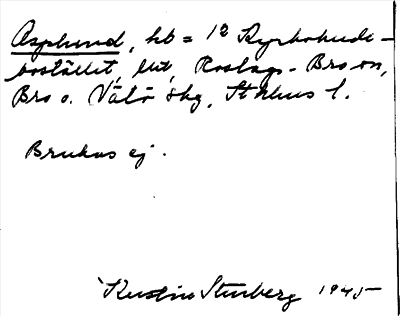 Asplund, hb = 1⁠2 Kyrkohude-
bostället, ht, Roslags-Bro sn,
Bro o. Vätö skg, Sthlms l.
Brukas ej.
Kerstin Stenberg 1945